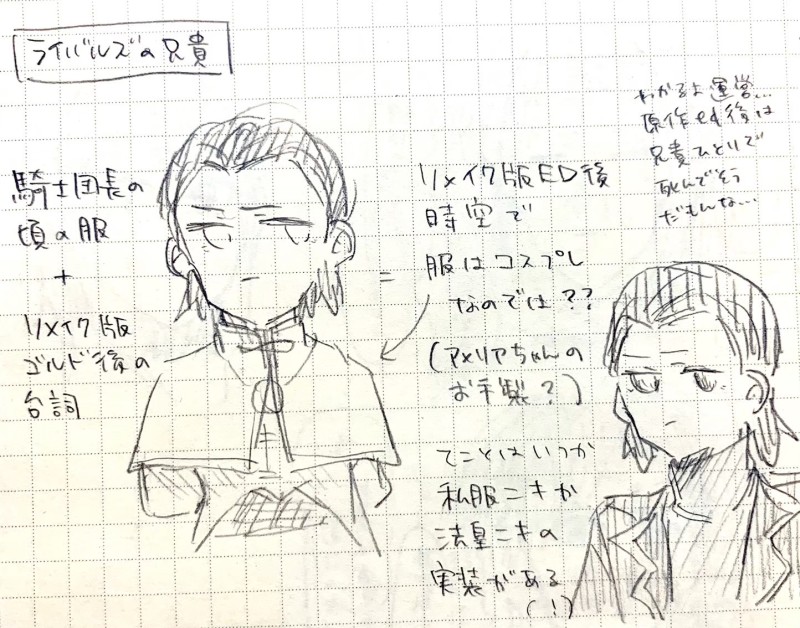 ライバルズの兄貴
騎士団長の
頃の服
+
リメイク版
ゴルド後の
台詞
=
リメイク版ED後
時空で
服はコスプレ
なのでは??
(アメリアちゃんの
お手製?)
てことはいつか
私服ニキか
法皇ニキの
実装がある
(!)
わかるよ運営…
原作ed後は
兄貴ひとりで
死んでそう
だもんな…